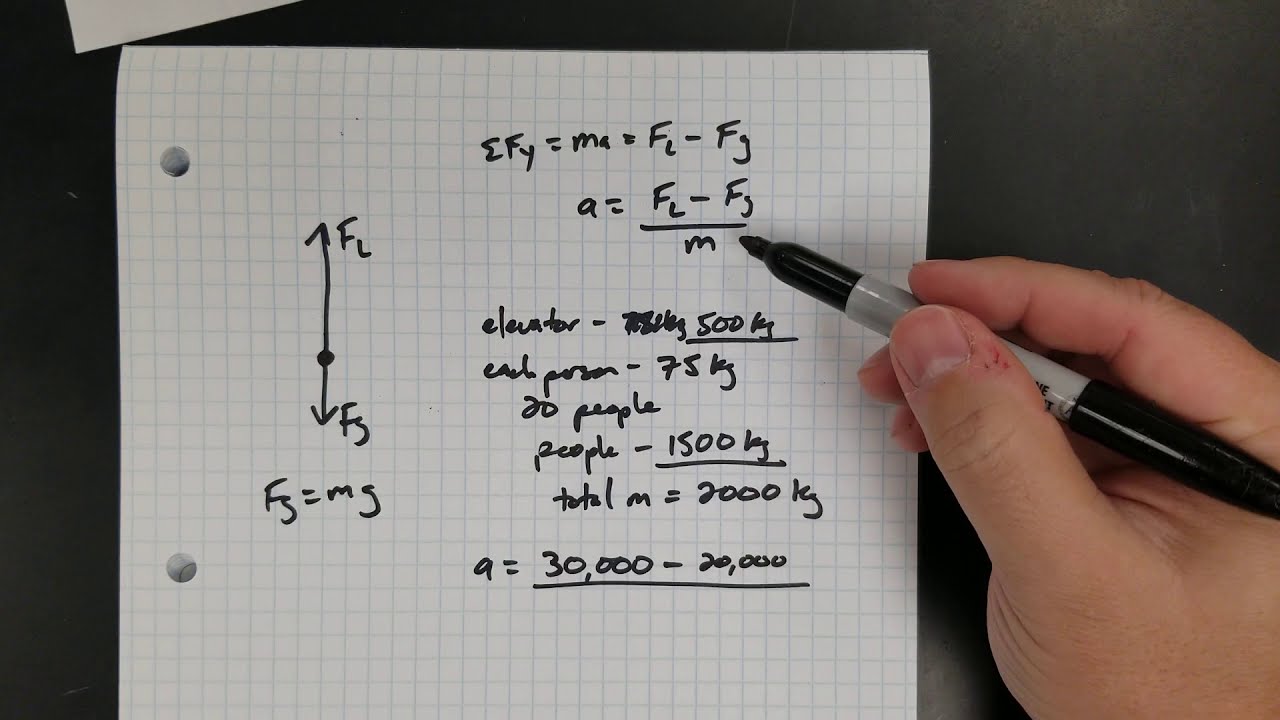 ΣFy = ma = FL - Fg
a = FL - Fg
m
FL
Fg
Fg = mg
elevator - 500 kg
each person - 75 kg
20 people
people - 1500 kg
total m = 2000 kg
a = 30,000 - 20,000